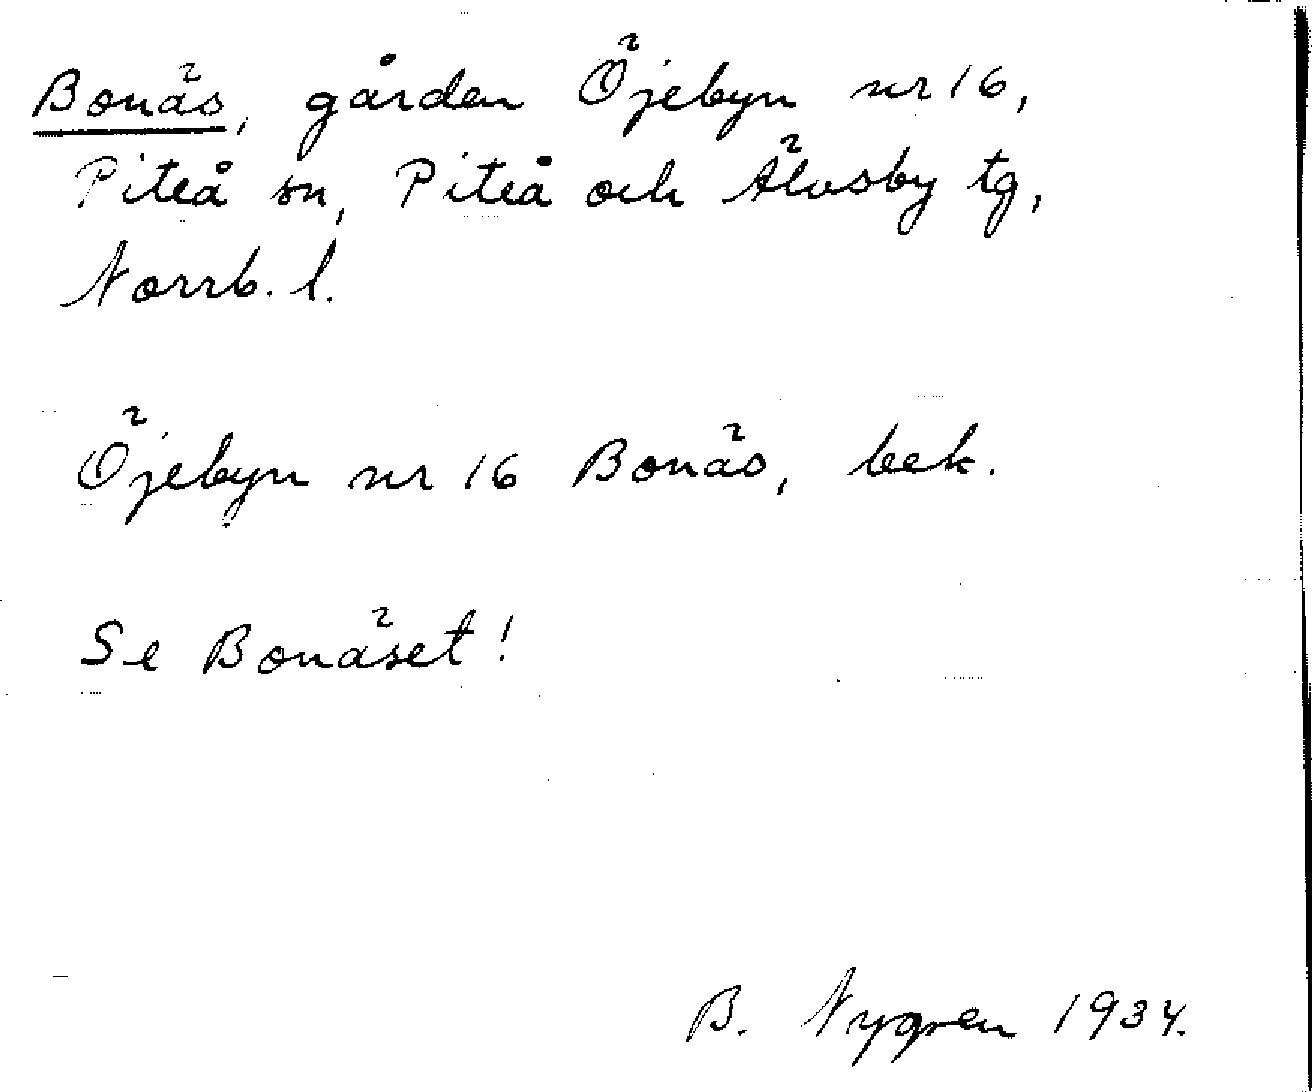 Bonäs, gården Öjebyn nr 16,
Piteå sn, Piteå och Älvsby tg,
Norrb. l.
Öjebyn nr 16 Bonäs, bek.
Se Bonäset!
B. Nygren 1934.